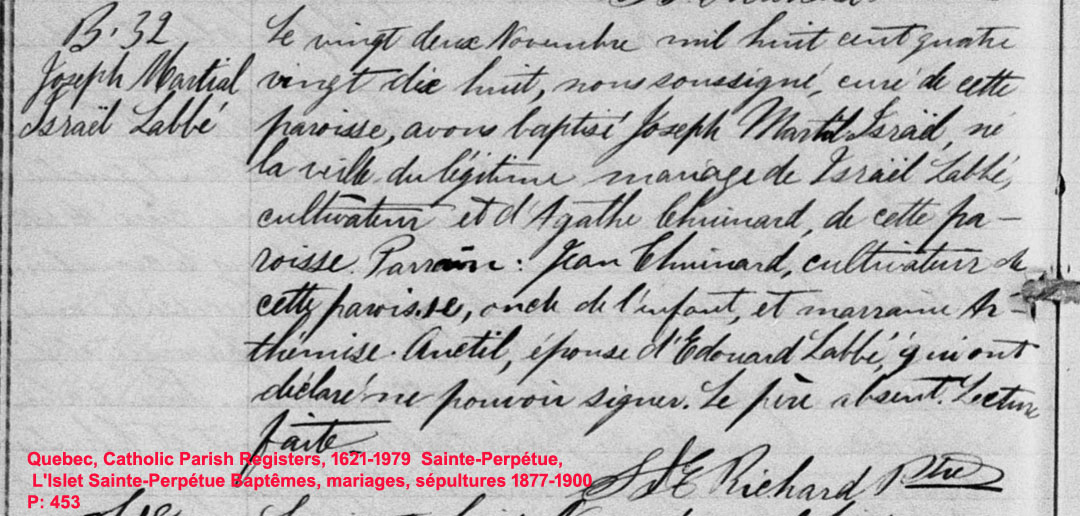 B. 32
Joseph Martial
Israël Labbé
Le vingt deux Novembre mil huit cent quatre
vingt dix huit, nous soussigné, curé de cette
paroisse, avons baptisé Joseph Martial Israël, né
la veille du légitime mariage de Israël Labbé,
cultivateur et d'Agathe Chuinard, de cette pa-
roisse. Parrain : Jean Chuinard, cultivateur de
cette paroisse, oncle de l'enfant, et marraine Ar-
thémise Anctil, épouse d'Edouard Labbé, qui ont
déclaré ne pouvoir signer. Le père absent. Lecture
faite
Richard Ptre
Quebec, Catholic Parish Registers, 1621-1979 Sainte-Perpétue,
L'Islet Sainte-Perpétue Baptêmes, mariages, sépultures 1877-1900
P: 453